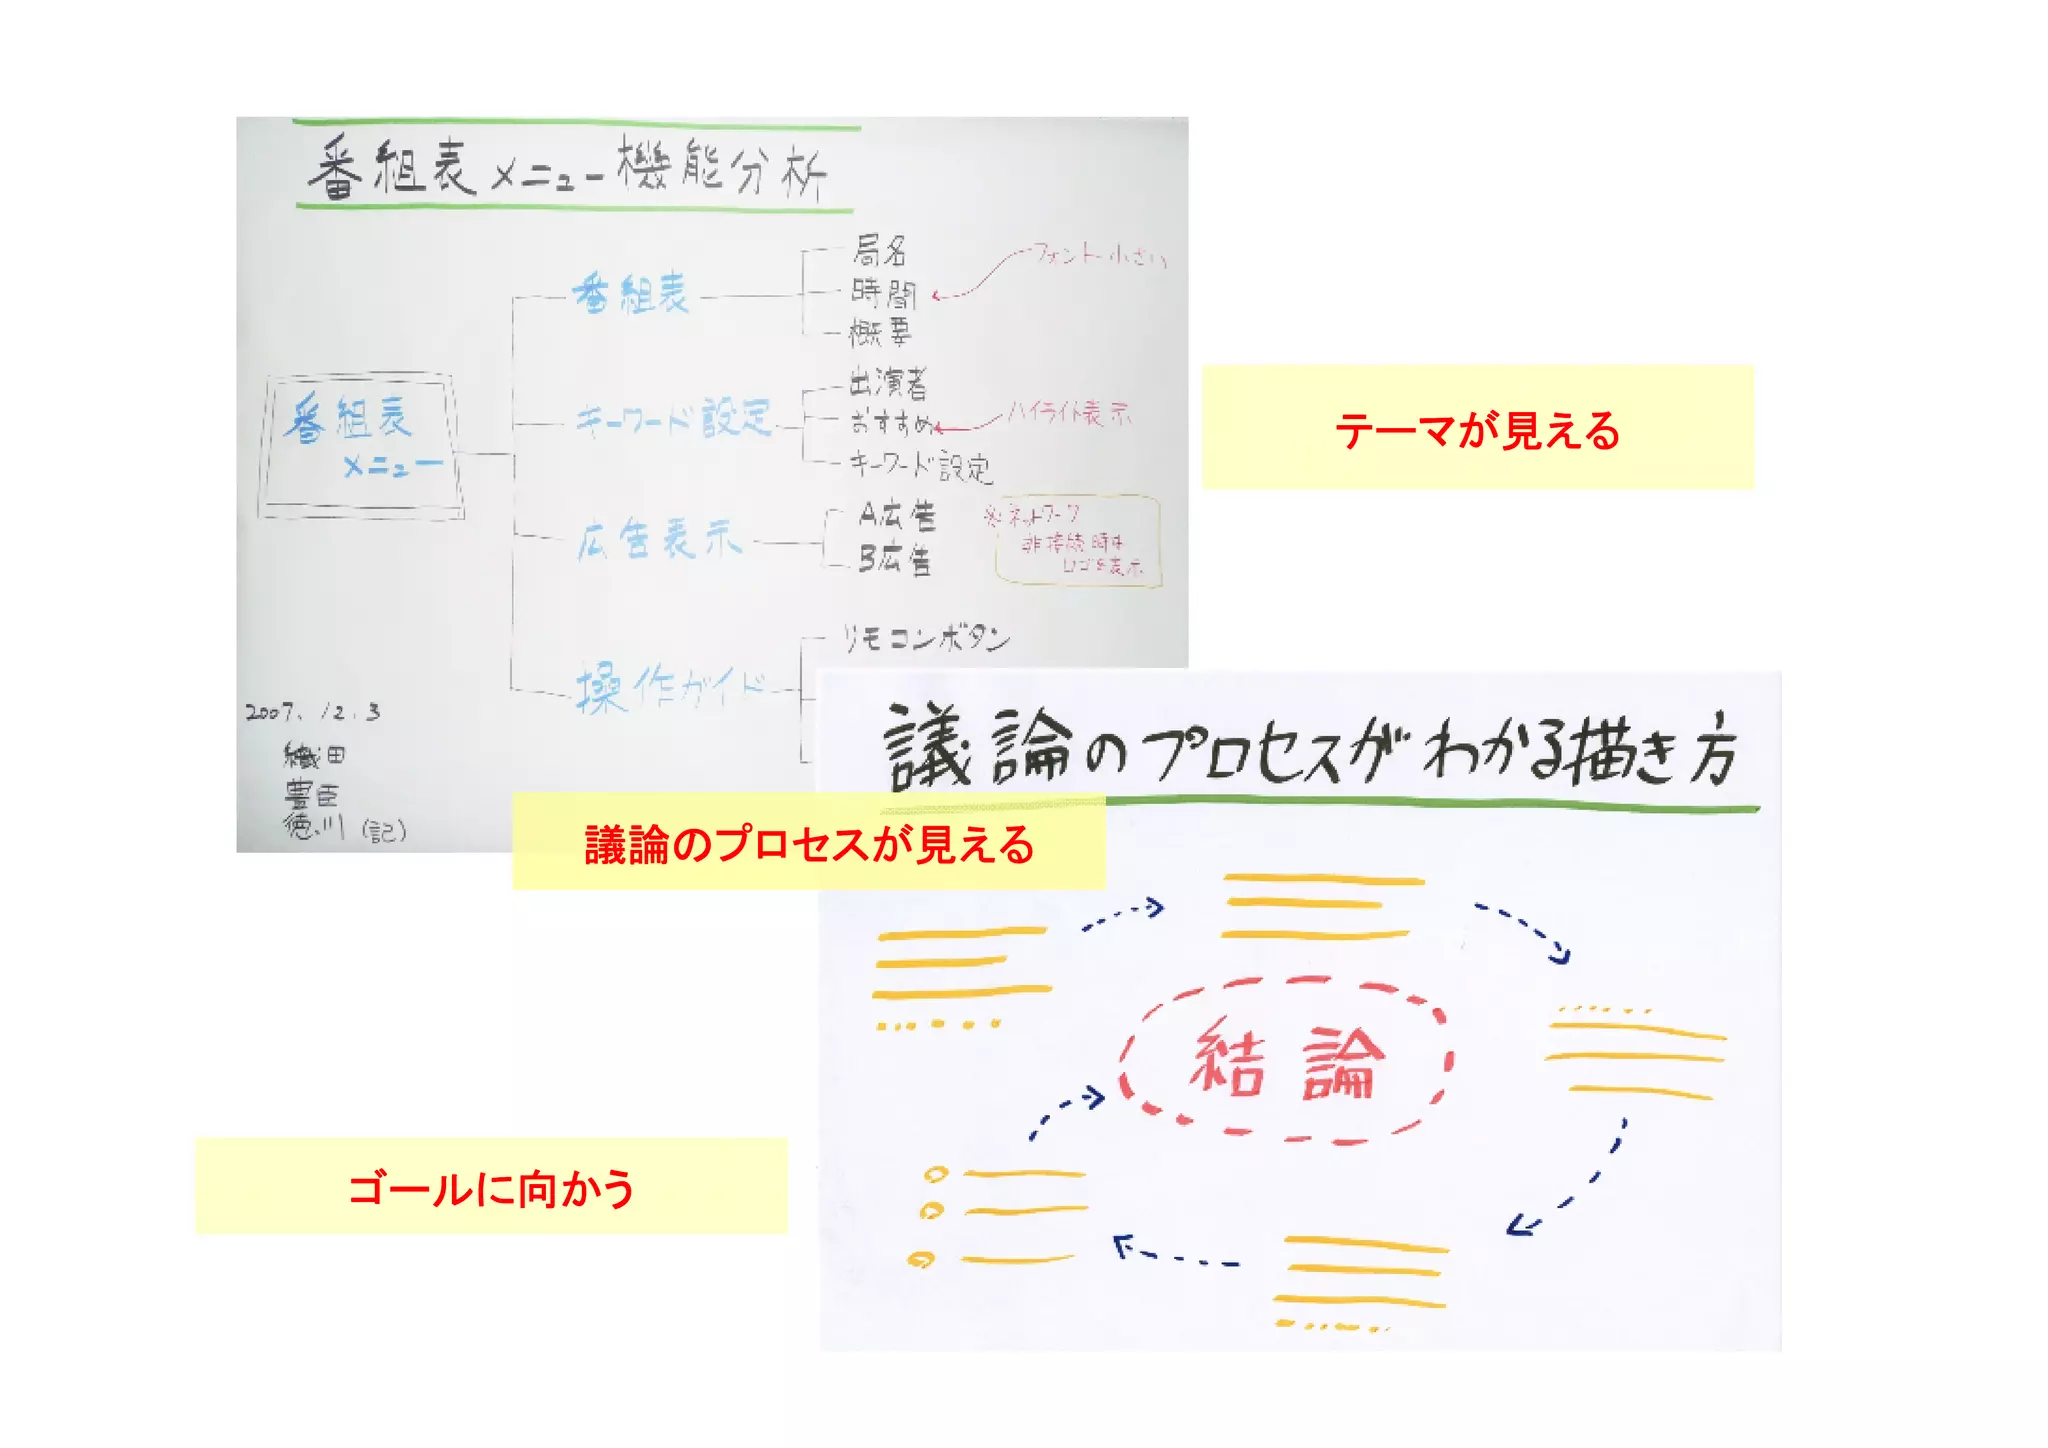 番組表メニュー機能分析
番組表メニュー
番組表
局名
時間
概要
フォント小さい
キーワード設定
出演者
おすすめ
キーワード設定
ハイライト表示
広告表示
A広告
B広告
※ネットワーク
非接続時は
ロゴを表示
操作ガイド
リモコンボタン
2007.12.3
織田
豊臣
徳川(記)
テーマが見える
議論のプロセスがわかる描き方
議論のプロセスが見える
結論
ゴールに向かう